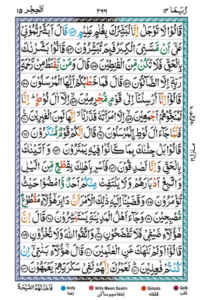 رُبَمَا ١٤ ٢٦٦ اَلْحِجْر ١٥
قَالُوْا لَا تَوْجَلْ اِنَّا نُبَشِّرُكَ بِغُلٰمٍ عَلِيْمٍ قَالَ اَبَشَّرْتُمُوْنِيْ
عَلٰٓى اَنْ مَّسَّنِيَ الْكِبَرُ فَبِمَ تُبَشِّرُوْنَ قَالُوْا بَشَّرْنٰكَ
بِالْحَقِّ فَلَا تَكُنْ مِّنَ الْقٰنِطِيْنَ قَالَ وَمَنْ يَّقْنَطُ مِنْ رَّحْمَةِ
رَبِّهٖٓ اِلَّا الضَّآلُّوْنَ قَالَ فَمَا خَطْبُكُمْ اَيُّهَا الْمُرْسَلُوْنَ
قَالُوْٓا اِنَّآ اُرْسِلْنَآ اِلٰى قَوْمٍ مُّجْرِمِيْنَ اِلَّآ اٰلَ لُوْطٍ اِنَّا
لَمُنَجُّوْهُمْ اَجْمَعِيْنَ اِلَّا امْرَاَتَهٗ قَدَّرْنَآ اِنَّهَا لَمِنَ الْغٰبِرِيْنَ
فَلَمَّا جَآءَ اٰلَ لُوْطِ الْمُرْسَلُوْنَ قَالَ اِنَّكُمْ قَوْمٌ مُّنْكَرُوْنَ
قَالُوْا بَلْ جِئْنٰكَ بِمَا كَانُوْا فِيْهِ يَمْتَرُوْنَ وَاَتَيْنٰكَ
بِالْحَقِّ وَاِنَّا لَصٰدِقُوْنَ فَاَسْرِ بِاَهْلِكَ بِقِطْعٍ مِّنَ الَّيْلِ
وَاتَّبِعْ اَدْبَارَهُمْ وَلَا يَلْتَفِتْ مِنْكُمْ اَحَدٌ وَّامْضُوْا حَيْثُ
تُؤْمَرُوْنَ وَقَضَيْنَآ اِلَيْهِ ذٰلِكَ الْاَمْرَ اَنَّ دَابِرَ هٰٓؤُلَآءِ مَقْطُوْعٌ
مُّصْبِحِيْنَ وَجَآءَ اَهْلُ الْمَدِيْنَةِ يَسْتَبْشِرُوْنَ قَالَ اِنَّ
هٰٓؤُلَآءِ ضَيْفِيْ فَلَا تَفْضَحُوْنِ وَاتَّقُوا اللّٰهَ وَلَا تُخْزُوْنِ
قَالُوْٓا اَوَلَمْ نَنْهَكَ عَنِ الْعٰلَمِيْنَ قَالَ هٰٓؤُلَآءِ بَنٰتِيْٓ اِنْ
كُنْتُمْ فٰعِلِيْنَ لَعَمْرُكَ اِنَّهُمْ لَفِيْ سَكْرَتِهِمْ يَعْمَهُوْنَ
فَاَخَذَتْهُمُ الصَّيْحَةُ